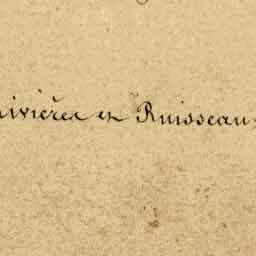 ivières et Ruisseau